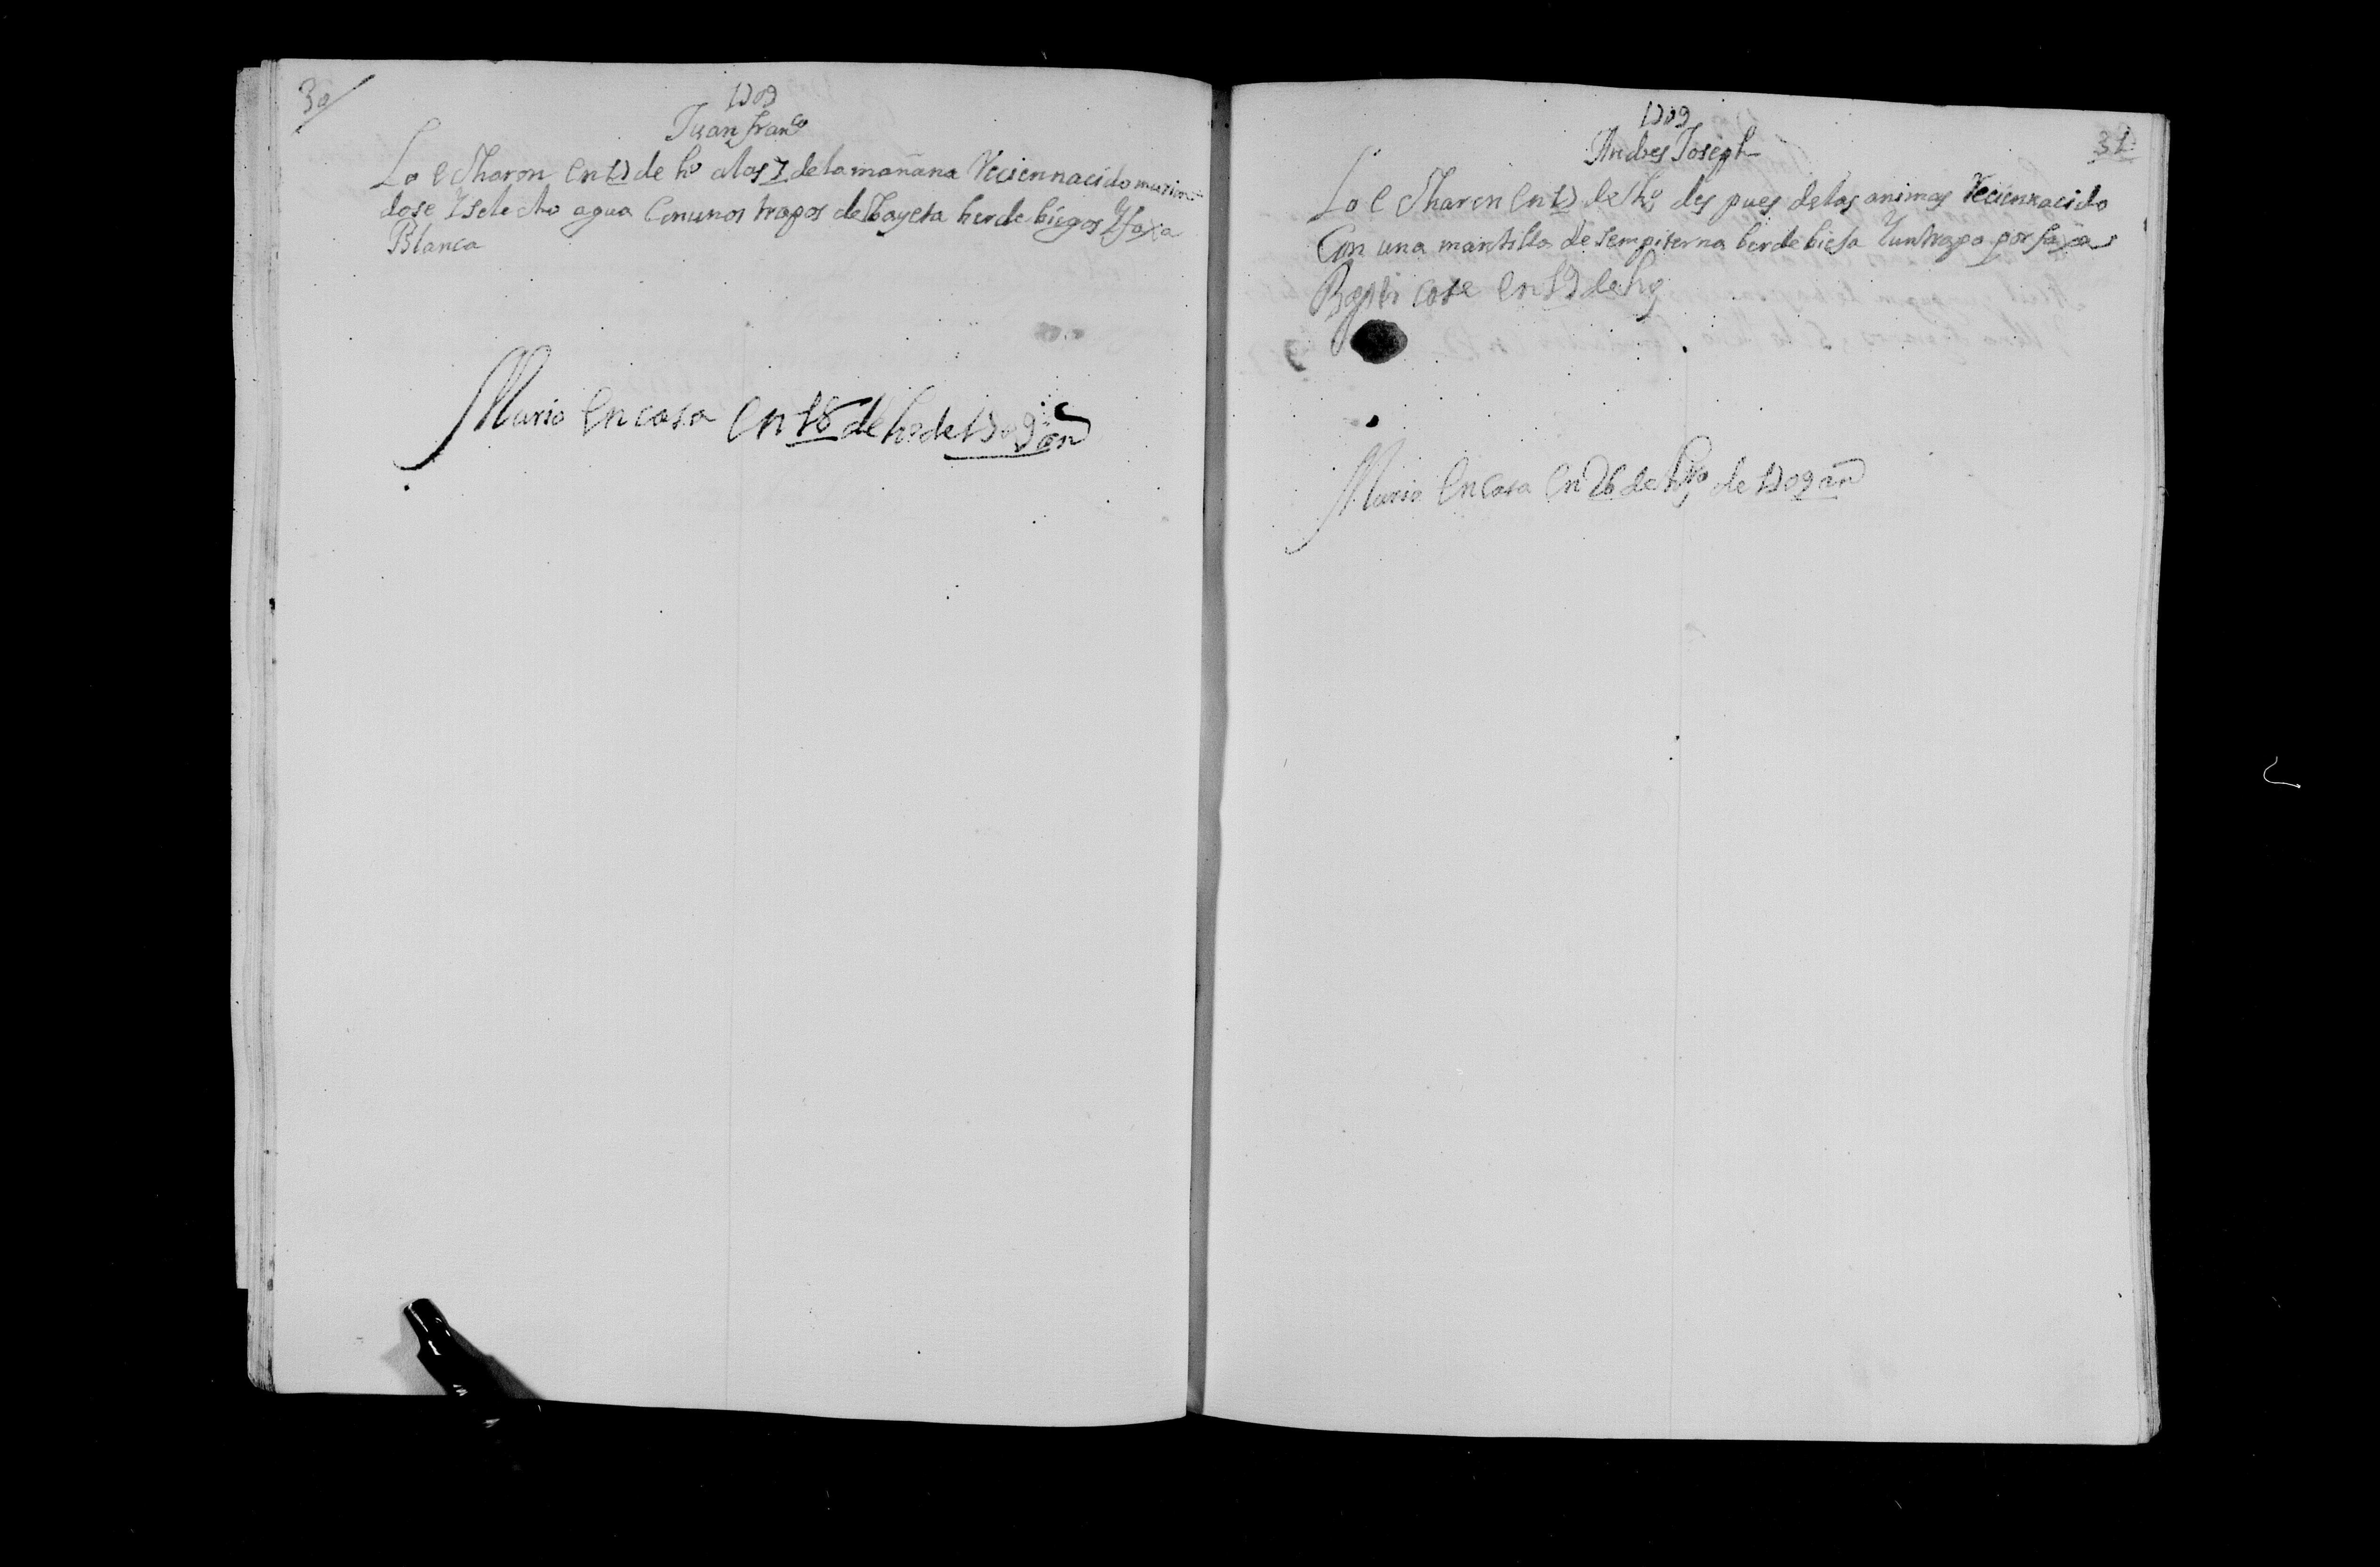 30
1709
Juan franco
Lo echaron en 17 de ho alas 7 de la mañana Reciennacido murien
dose Y sele echo agua Con unos trapos de Bayeta berde biegos Y faxa
Blanca
Murio En casa En 18 de ho de 1709 an
31
1709
Andres Joseph
Lo echaron en 17 de ho des pues delas animas Reciennacido
Con una mantilla de sempiterna berde bieja Y un trapo por faxa
Bapti cose en 19 de ho
Murio En casa En 26 de de 1709 an